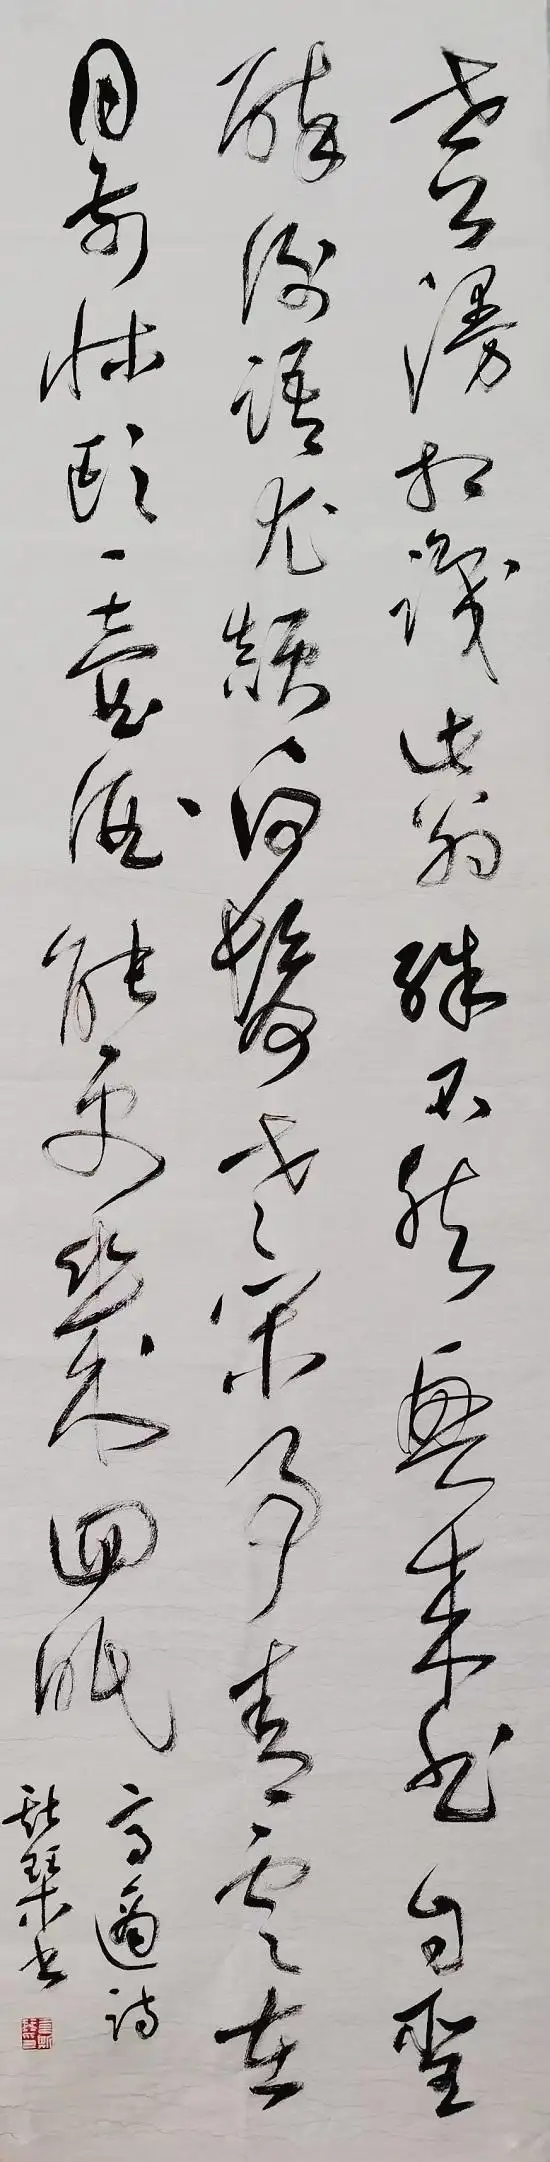 世上漫相識此翁殊不然興來書自聖
醉後語尤顛白髮老閑事青雲在
目前牀頭一壺酒能更幾回眠
高適詩
琴書